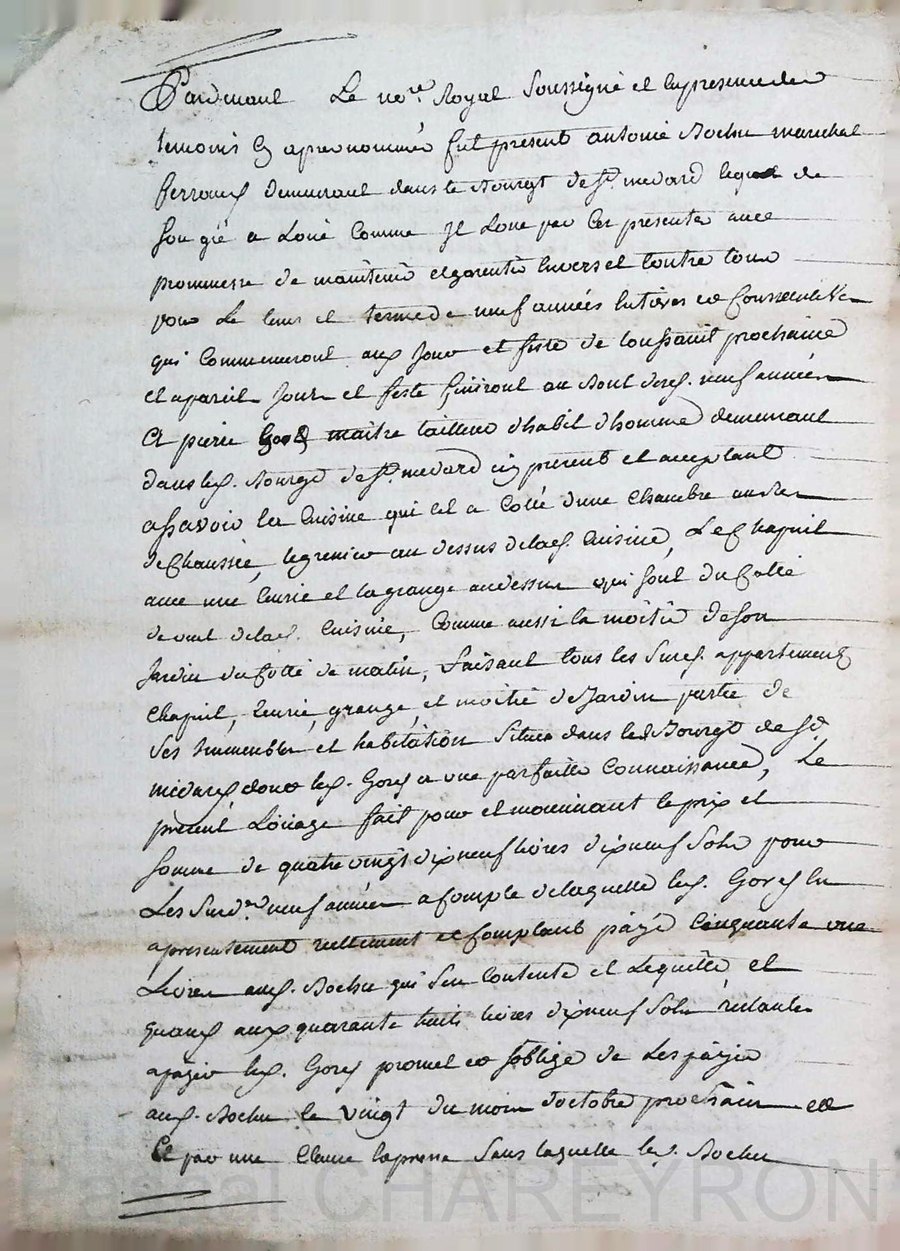 Pardevant Le no.re Royal Soussigné et en presence des
temoins cy apres nommés fut present antoine Rochu marechal
ferrant demeurant dans le Bourgt de St. medard lequel de
son gré a Loué Comme Il Loue par Ces presentes avec
prommesse de maintenir et garentir Envers et Contre tous
pour Le tems et terme de neuf années Entieres et Conssecutives
qui Commenceront aux Jour et feste de toussaint prochaine
et a pareil Jour et feste finiront au Bout desd. neuf années
a pierre maitre tailleur d'habit d'homme demeurant
dans led. Bourgt de St. medard icy present et acceptant
assavoir la Cuisine qui est a Coté d'une Chambre au rez
de Chaussée, le grenier au dessus de lad. Cuisine, Le Chapuit
avec une Eurie et la grange au dessus qui sont du Cotté
de vent de lad. Cuisine, Comme aussi la moitié de son
Jardin du Cotté de matin, faisant tous les susd. appartements
Chapuit, Eurie, grange, et moitié de Jardin partie de
Ses Immeubles et habitation Situés dans led. Bourgt de St.
medard dont led. Gord a une parfaitte Connaissance, Le
present Loüage fait pour et moiennant le prix et
somme de quatre vingt dix neuf livres dix neuf Sols pour
Les Susd. neuf années a Compte de laquelle led. Gord En
a presentement reellement et Comptant payé Cinquante une
Livres aud. Rochu qui s'en Contente et L'equitte et
quand aux quarante huit livres dix neuf Sols restantes
a payer led. Gord promet et s'oblige de Les payer
aud. Rochu le vingt du mois d'octobre prochain et
Ce par une Clause Expresse Sans laquelle led. Rochu
Pascal CHAREYRON